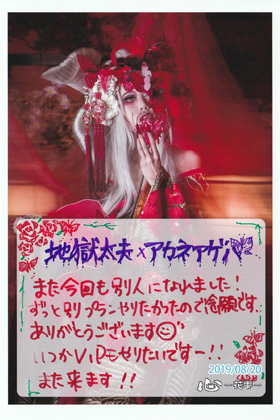 地獄太夫×アカネアゲハ
また今回も別人になれました！
ずっと別プランやりたかったので念願です。
ありがとうございます
いつかVIPもせりたいですー!!
また来ます!!
2019/08/20
心 一花夢